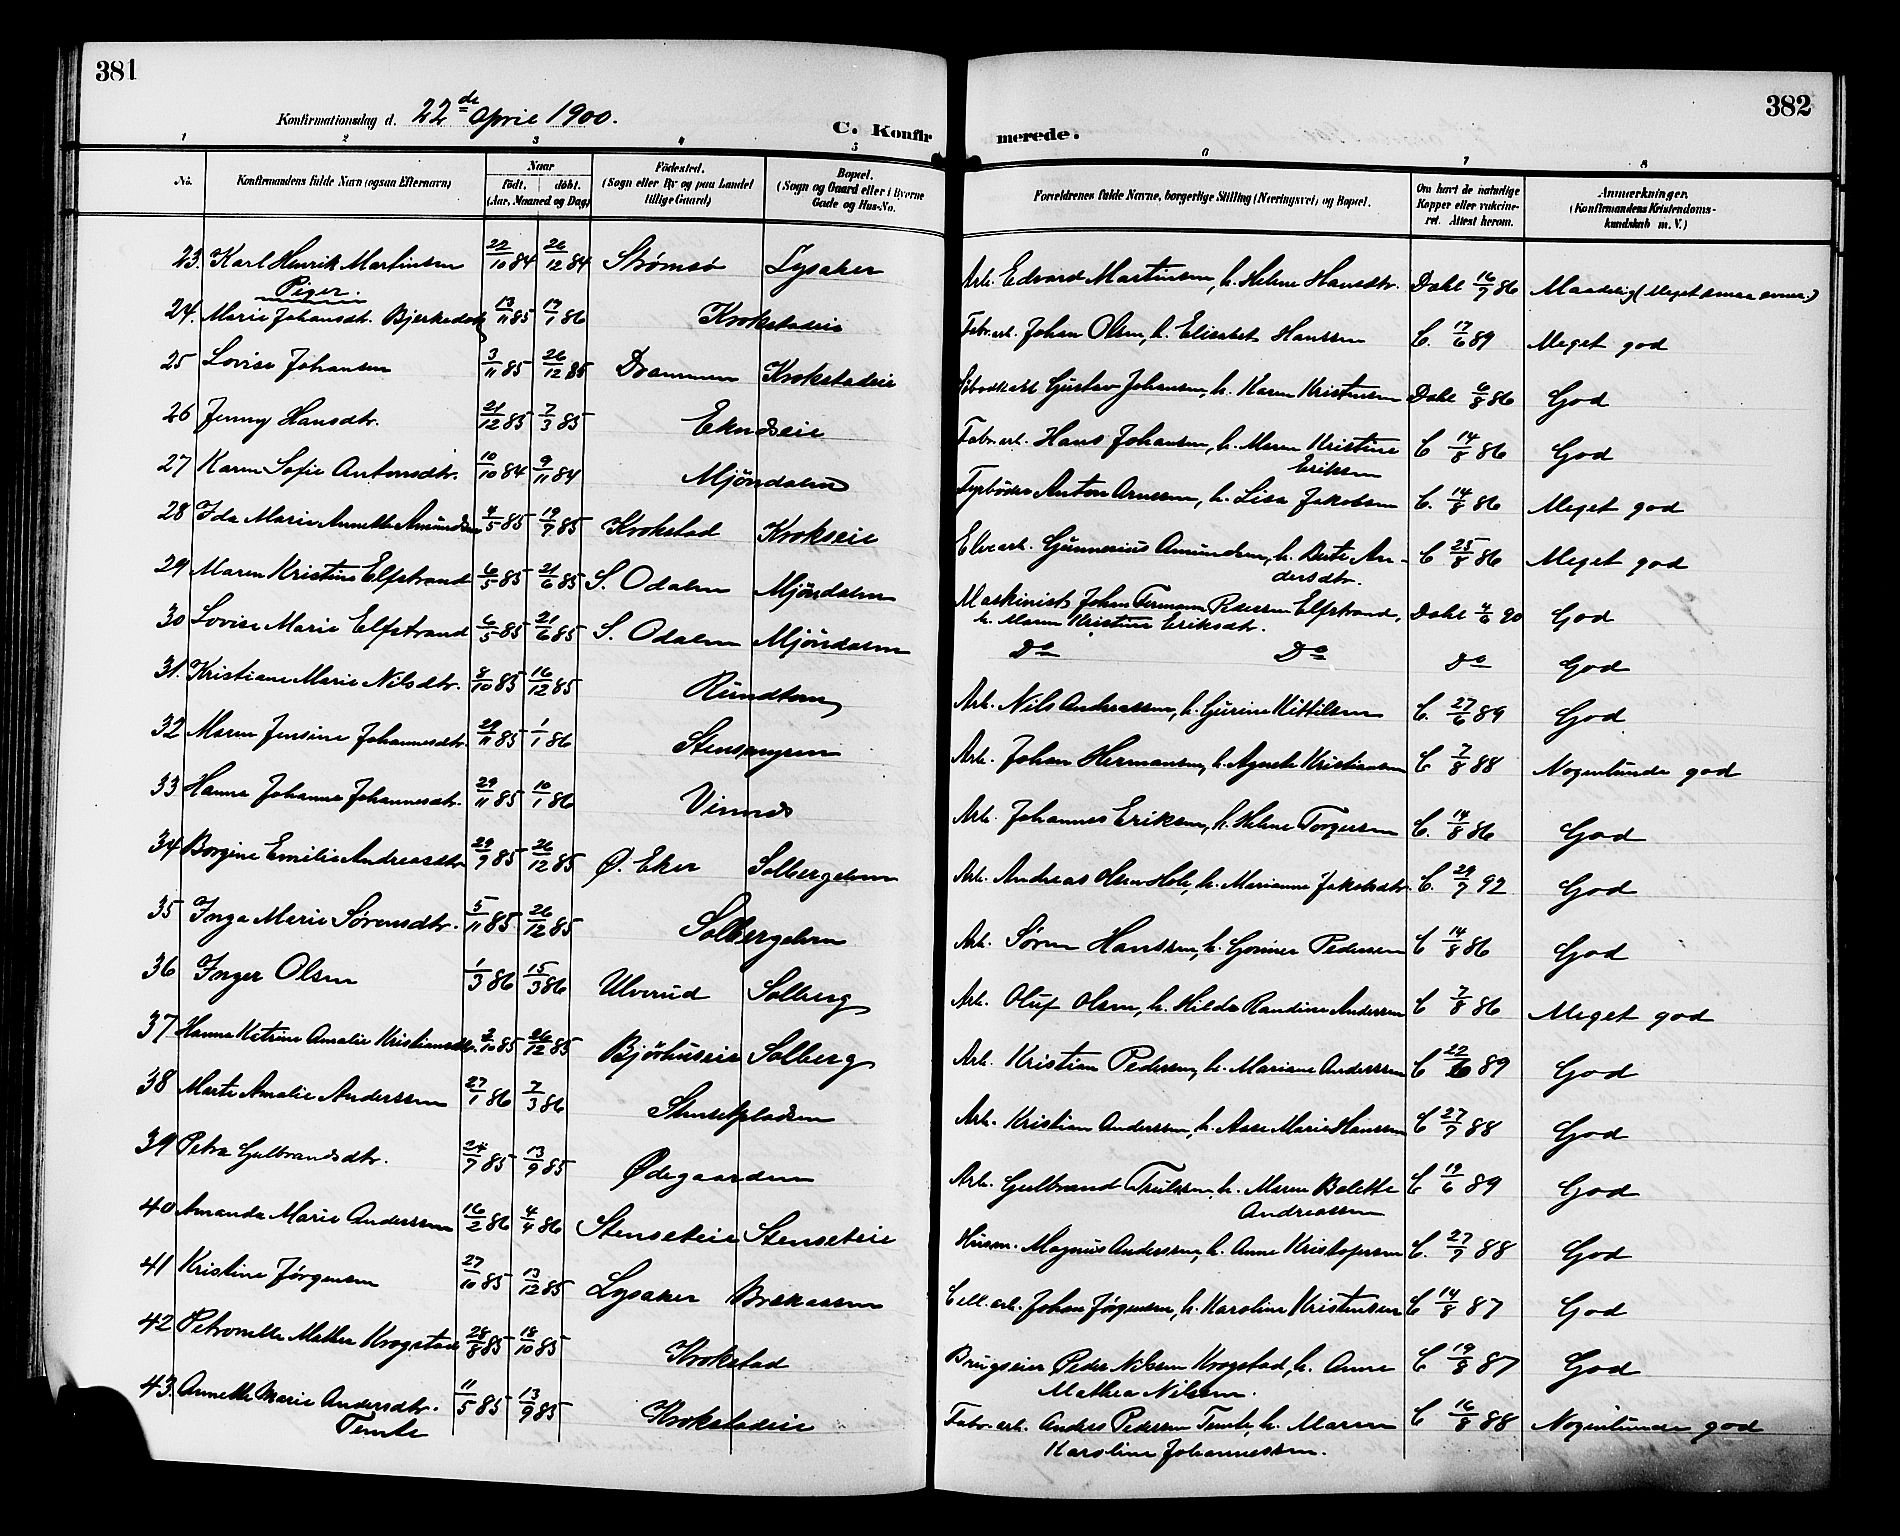 381
382
Konfirmationsdag d. 22de April 1900.
C. Konfirmerede.
1 2 3 4 5 6 7 8
No. Konfirmandens fulde Navn (ogsaa Efternavn) Naar födt. döbt. (Aar, Maaned og Dag) Födested. (Sogn eller By og paa Landet tillige Gaard) Bopæl. (Sogn og Gaard eller i Byerne Gade og Hus-No. Forældrenes fulde Navne, borgerlige Stilling (Næringsvei) og Bopæl. Om havt de naturlige Kopper eller vakcineret. Attest herom. Anmærkninger. (Konfirmandens Kristendomskundskab m. V.)
23. Karl Henrik Martinsen 22/10 84 26/12 84 Strømsø Lysaker Arb. Edvard Martinsen, h. Helene Hansdtr. Dahl 16/7 86 Maadelig (Meget smaa evner.)
Piger.
24. Marie Johansdtr. Bjerkedok 13/11 85 17/1 86 Krokstadeie Fabr.arb. Johan Olsen, h. Elisabet Hanssen C. 17/6 89 Meget god
25 Lovise Johansen 3/11 85 26/12 85 Drammen Krokstadeie Gustav Johansen, h. Karen Kristensen Dahl 6/8 86 God
26 Jenny Hansdtr. 21/12 85 7/3 85 Eknæseie Fabr.arb. Hans Johansen, h. Maren Kristine Eriksen C 14/8 86 God
27 Karen Sofie Antonsdtr. 10/10 84 9/11 84 Mjöndalen Fyrböder Anton Arnessen, h. Lisa Jakobsen C. 14/8 86 Meget god
28 Ida Marie Annette Amundsen 4/5 85 19/7 85 Krokstad Krokseie Elvearb. Gunnerius Amundsen, h. Berte Andersdtr. C 25/8 86 Meget god
29 Maren Kristine Elfstrand 6/5 85 21/6 85 S. Odalen Mjöndalen Maskinist Johan Elfstrand, h. Maren Kristine Eriksdtr. Dahl 4/6 90 God
30 Lovise Marie Elfstrand 6/5 85 21/6 85 S. Odalen Mjöndalen Do Do Do God
31. Kristiane Marie Nilsdtr. 8/10 85 16/12 85 Rundtom Arb. Nils Andreassen, h. Gurine Kittilsen C. 27/6 89 God
32 Maren Jensine Johannesdtr. 29/11 85 1/1 86 Stensmyren Arb. Johan Hermansen, h. Agnete Kristiansen C 7/8 88 Nogenlunde god
33 Hanna Johanne Johannesdtr. 29/11 85 10/1 86 Vinnæs Arb. Johannes Eriksen, h. Helene Torgersen C. 14/8 86 God
34 Borgine Emilie Andreasdtr 29/9 85 26/12 85 Ø. Eker Solbergelven Arb. Andreas Olsen Hole, h. Marianne Jakobsdtr. C. 29/7 92 God
35 Inga Marie Sørensdtr. 5/11 85 26/12 85 Solbergelven Arb. Søren Hanssen, h. Gunner Pedersen C 14/8 86 God
36 Inger Olsen 1/3 86 15/3 86 Ulverud Solberg Arb. Oluf Olsen, h. Hilda Randine Andersen C 7/8 86 Meget god
37 Hanna Katrine Amalie Kristiansdtr. 2/10 85 26/12 85 Bjørhuseie Solberg Arb. Kristian Pedersen, h. Mariane Anderssen C 22/6 89 God
38 Marte Amalie Anderssen 27/1 86 7/3 86 Stensetpladsen Arb. Kristian Anderssen, h. Aase Marie Hanssen C 27/7 88 God
39 Petra Gulbrandsdtr. 24/7 85 13/9 85 Ødegaarden Arb. Gulbrand Trulssen, h. Maren Bolette Andreassen C 19/6 89 God
40 Amanda Marie Anderssen 16/2 86 4/4 86 Stenseteie Stenseteie Husm. Magnus Anderssen, h. Anne Kristofersen C. 27/7 88 God
41 Kristine Jørgensen 27/10 85 13/12 85 Lysaker Brekaasen Cell.arb. Johan Jørgensen, h. Karoline Kristensen C 14/8 87 God
42 Petronelle Mathea Krogstad 28/8 85 18/10 85 Krokstad Brugseier Peder Nilsen Krogstad, h. Anne Mathea Nilsen. C 19/8 87 God
43. Annette Marie Andersdtr. Temte 11/5 85 13/9 85 Krokstadeie Fabr.arb. Anders Pedersen Temte, h. Maren Karoline Johannessen. C 16/8 88 Nogenlunde god